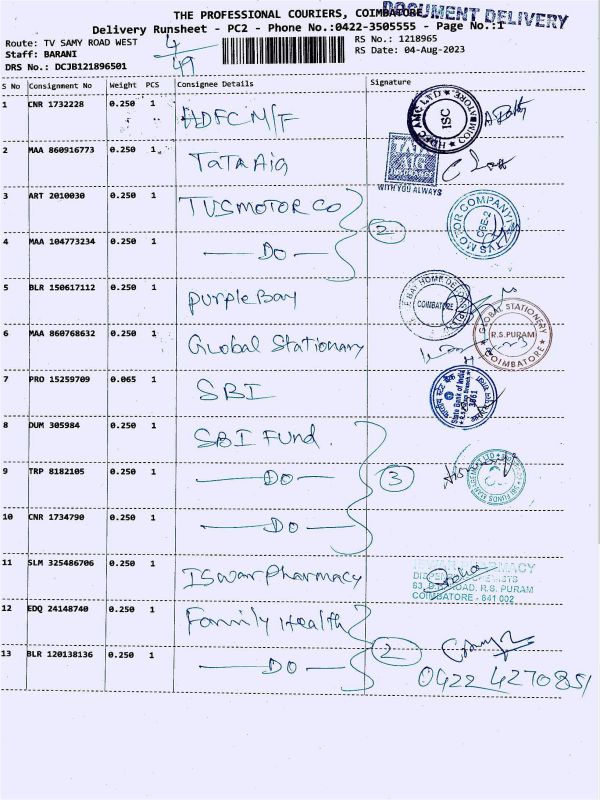 THE PROFESSIONAL COURIERS, COIMBATORE
DOCUMENT DELIVERY
Delivery Runsheet - PC2 - Phone No.:0422-3505555 - Page No.:1
Route: TV SAMY ROAD WEST
4/49
RS No.: 1218965
Staff: BARANI
RS Date: 04-Aug-2023
DRS No.: DCJB121896501
S No Consignment No Weight PCS Consignee Details Signature
1 CNR 1732228 0.250 1 HDFC M/F
HDFC AMC LTD
ISC
COIMBATORE
2 MAA 860916773 0.250 1 TATA AIG
TATA AIG
INSURANCE
WITH YOU ALWAYS
3 ART 2010030 0.250 1 TVS MOTOR CO
2
TVS MOTOR COMPANY
CBE-2
4 MAA 104773234 0.250 1 — Do —
5 BLR 150617112 0.250 1 Purple Bay
COIMBATORE
6 MAA 860768632 0.250 1 Global Stationary
GLOBAL STATIONERY
R.S. PURAM
COIMBATORE
7 PRO 15259709 0.065 1 SBI
State Bank of India
8 DUM 305984 0.250 1 SBI Fund.
9 TRP 8182105 0.250 1 — Do —
3
SBI FUNDS MANAGEMENT LTD
10 CNR 1734790 0.250 1 — Do —
11 SLM 325486706 0.250 1 Iswar Pharmacy
PHARMACY
R.S. PURAM
COIMBATORE - 641 002
12 EDQ 24148740 0.250 1 Family Health
2
13 BLR 120138136 0.250 1 — Do —
0422 4270851